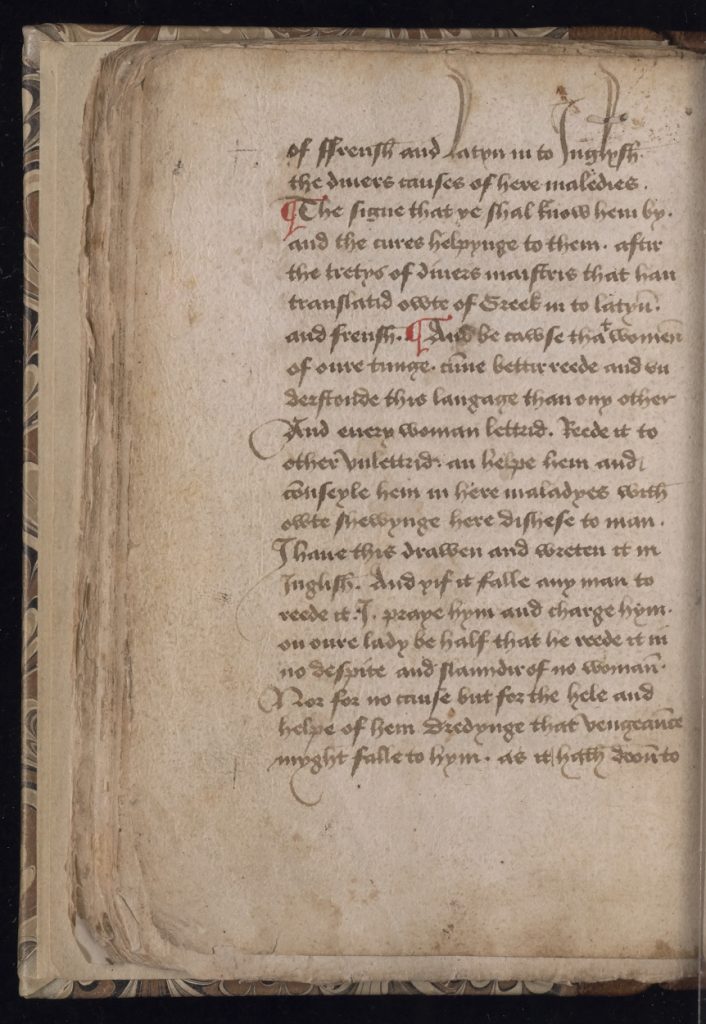 of ffrensh and latyn in to Inglysh
the diuers causes of here maledies.
¶The signe that ye shal know hem by.
and the cures helpynge to them. aftir
the tretys of diuers maistris that han
translatid owte of Greek in to latyn̄.
and frensh. ¶And be cawse that women
of oure tunge. cūne bettir reede and vn
derstonde this langage than ony other
And euery woman lettrid. Reede it to
other vnlettrid. an helpe hem and
cōnseyle hem in here maladyes with
owte shewynge here dishese to man.
I haue this drawen and wreten it in
Inglish. And yif it falle any man to
reede it. I. praye hym and charge hym.
on oure lady be half that he reede it in
no despite and slaundir of no woman̄.
Nor for no cause but for the hele and
helpe of hem dredynge that vengeañce
myght falle to hym. as it hath dooñ to